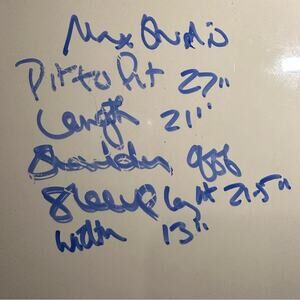 Pit to Pit 27"
Length 21"
Shoulder
Sleeve lengt 21.5"
width 13"